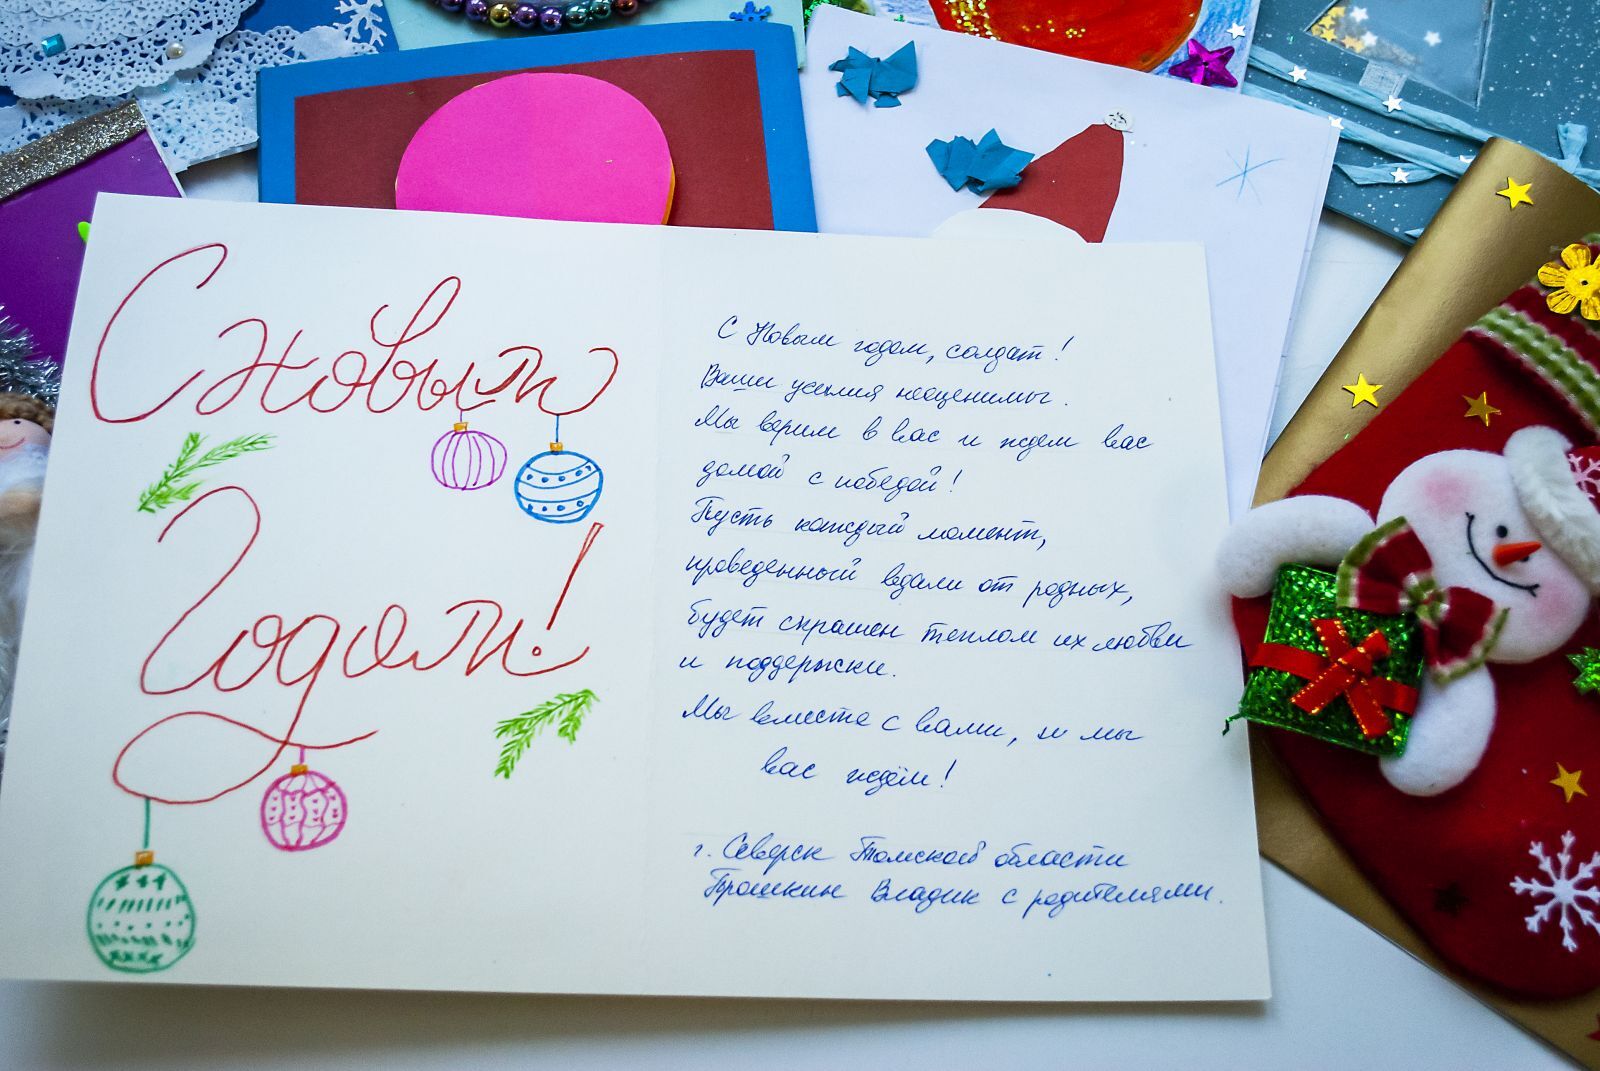 С новым
Годом!
С Новым годом, солдат!
Ваши усилия неоценимы.
Мы верим в вас и ждем вас
домой с победой!
Пусть каждый момент,
проведенный вдали от родных,
будет скрашен теплом их любви
и поддержки.
Мы вместе с вами, и мы
вас ждём!
г. Северск Томской области
Владик с родителями.